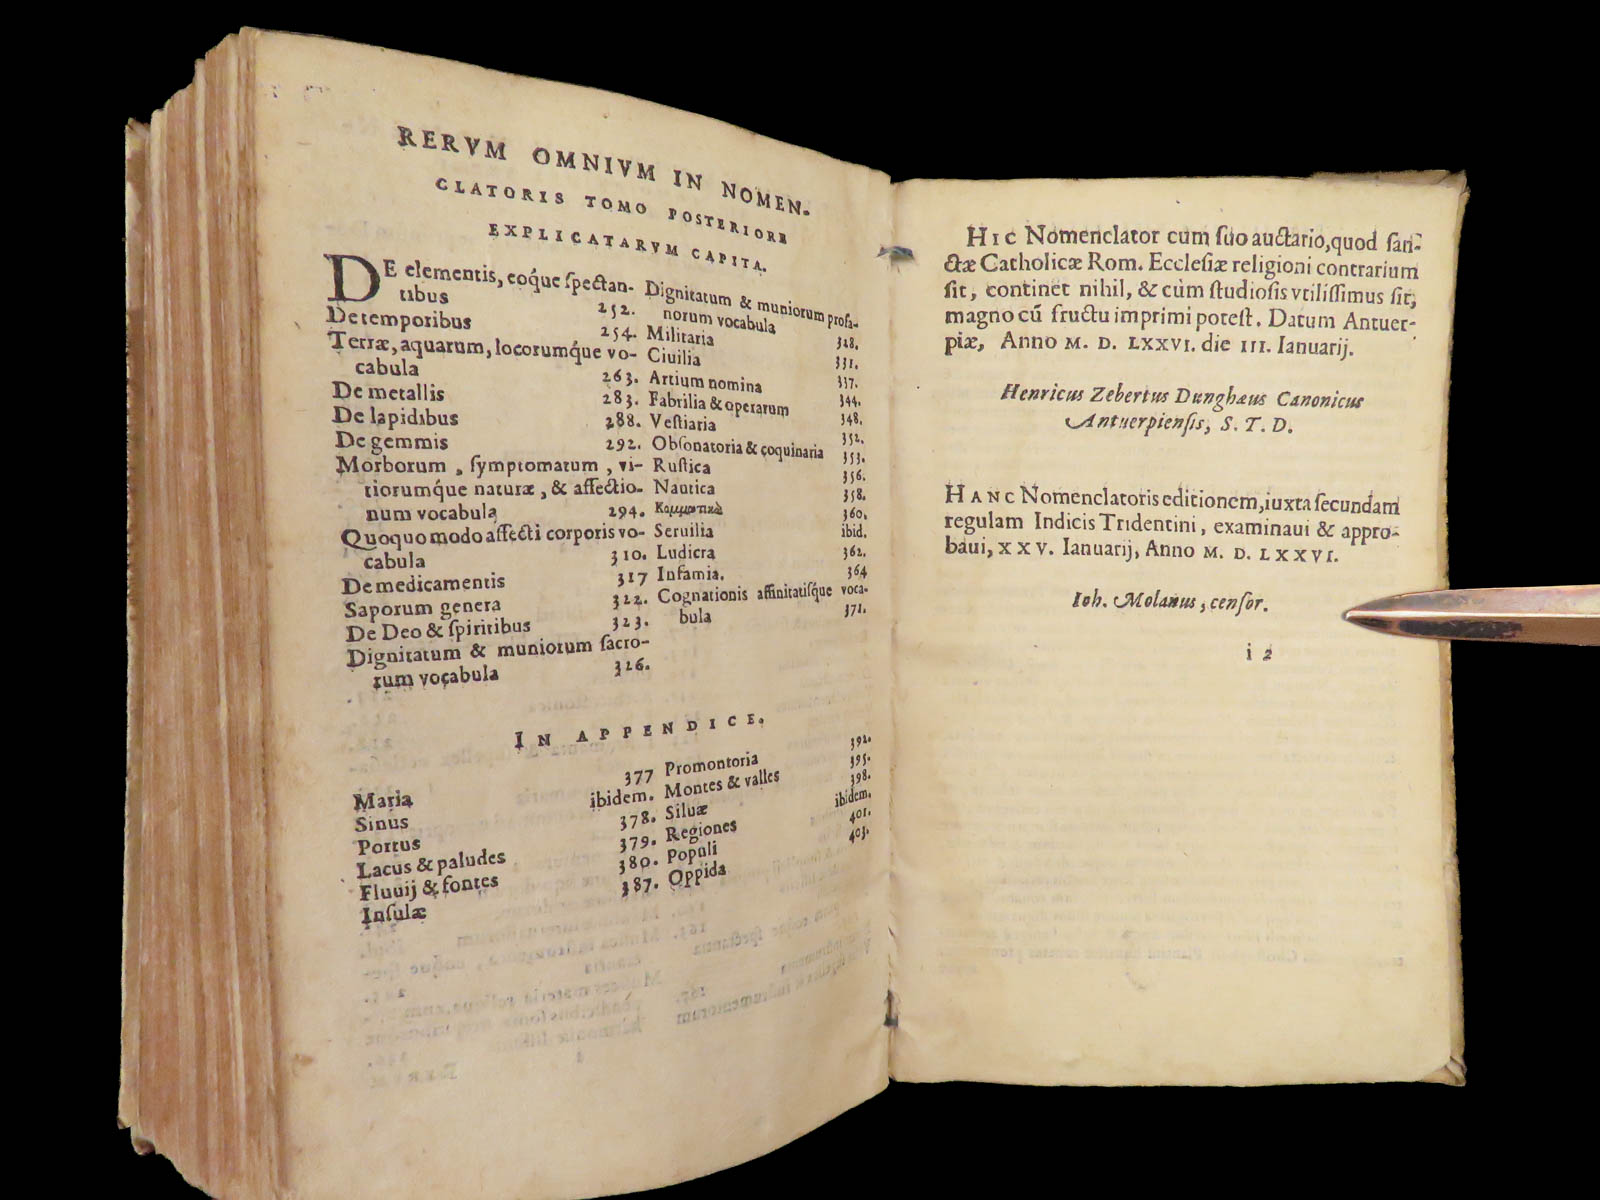 RERVM OMNIVM IN NOMEN-
CLATORIS TOMO POSTERIORE
EXPLICATARVM CAPITA.
DE elementis, eoq́ue ſpectan-
tibus 252.
De temporibus 254.
Terræ, aquarum, locorumq́ue vo-
cabula 263.
De metallis 283.
De lapidibus 288.
De gemmis 292.
Morborum, ſymptomatum, vi-
tiorumq́ue naturæ, & affectio-
num vocabula 294.
Quoquo modo affecti corporis vo-
cabula 310.
De medicamentis 317
Saporum genera 322.
De Deo & ſpiritibus 323.
Dignitatum & muniorum ſacro-
rum vocabula 326.
Dignitatum & muniorum profa-
norum vocabula 328.
Militaria 331.
Ciuilia 337.
Artium nomina 344.
Fabrilia & operarum 348.
Veſtiaria 352.
Obſonatoria & coquinaria 353.
Ruſtica 356.
Nautica 358.
Κομμωτικὰ 360.
Seruilia ibid.
Ludicra 362.
Infamia. 364
Cognationis affinitatiſq́ue voca-
bula 371.
IN APPENDICE.
Maria 377
Sinus ibidem.
Portus 378.
Lacus & paludes 379.
Fluuij & fontes 380.
Inſulæ 387.
Promontoria 392.
Montes & valles 395.
Siluæ 398.
Regiones ibidem.
Populi 401.
Oppida 403.
HIC Nomenclator cum ſuo auctario, quod ſan-
ctæ Catholicæ Rom. Eccleſiæ religioni contrarium
ſit, continet nihil, & cùm ſtudioſis vtiliſſimus ſit,
magno cū fructu imprimi poteſt. Datum Antuer-
piæ, Anno M. D. LXXVI. die III. Ianuarij.
Henricus Zebertus Dunghæus Canonicus
Antuerpienſis, S. T. D.
HANC Nomenclatoris editionem, iuxta ſecundam
regulam Indicis Tridentini, examinaui & appro-
baui, XXV. Ianuarij, Anno M. D. LXXVI.
Ioh. Molanus, cenſor.
i 2